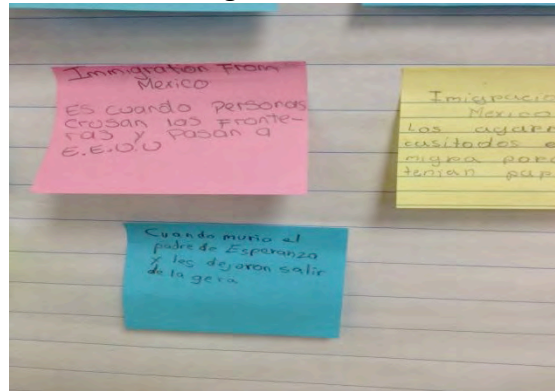 Immigration From
Mexico
Es cuando personas
crusan las fronte-
ras y pasan a
E.E.U.U
Imigracio
Mexico
Los agarr
casitodos e
migra porq
tenian pap
Cuando murio el
padre de Esperanza
y les dejaron salir
de la